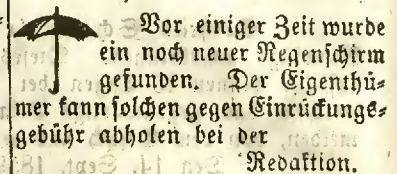 Vor einiger Zeit wurde
ein noch neuer Regenschirm
gefunden. Der Eigenthü⸗
mer kann solchen gegen Einrückungs⸗
gebühr abholen bei der
Redaktion.